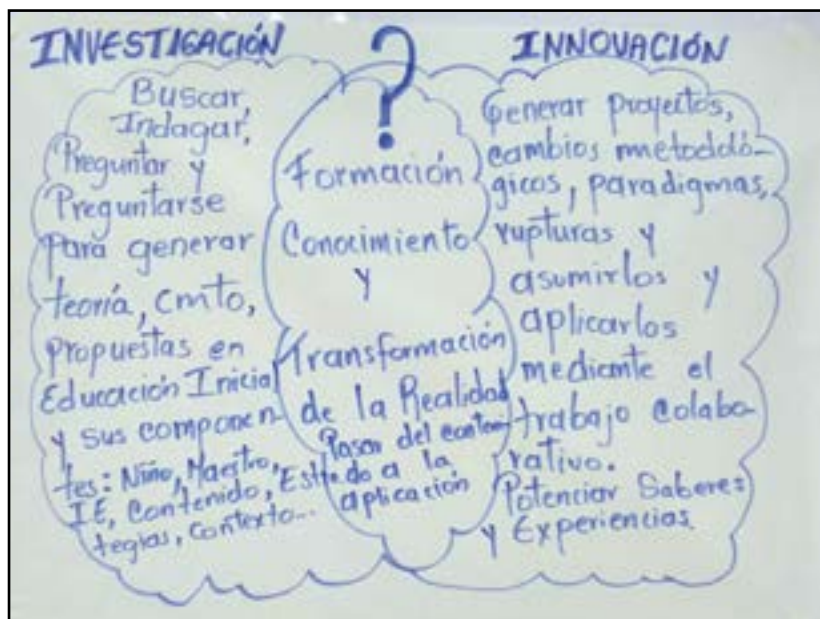 INVESTIGACIÓN
Buscar,
Indagar,
Preguntar y
Preguntarse
para generar
teoría, cmto,
propuestas en
Educación Inicial
y sus componen-
tes: Niño, Maestro,
IE, Contenido, Estra
tegias, contexto...
?
Formación
Conocimiento
y
Transformación
de la Realidad
Pasar del conteni
do a la
aplicación
INNOVACIÓN
Generar proyectos,
cambios metodoló-
gicos, paradigmas,
rupturas y
asumirlos y
aplicarlos
mediante el
trabajo colabo-
rativo.
Potenciar Saberes
y Experiencias.